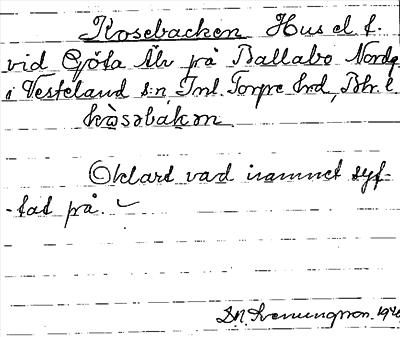 Kosebacken Hus el t.
vid Göta Älv på Ballabo Nordg
i Västeland s:n, Inl. Torpe hrd, Bhl.
kòsəbakən
Oklart vad namnet syf-
-tat på.
D.N. Svenungsson. 19